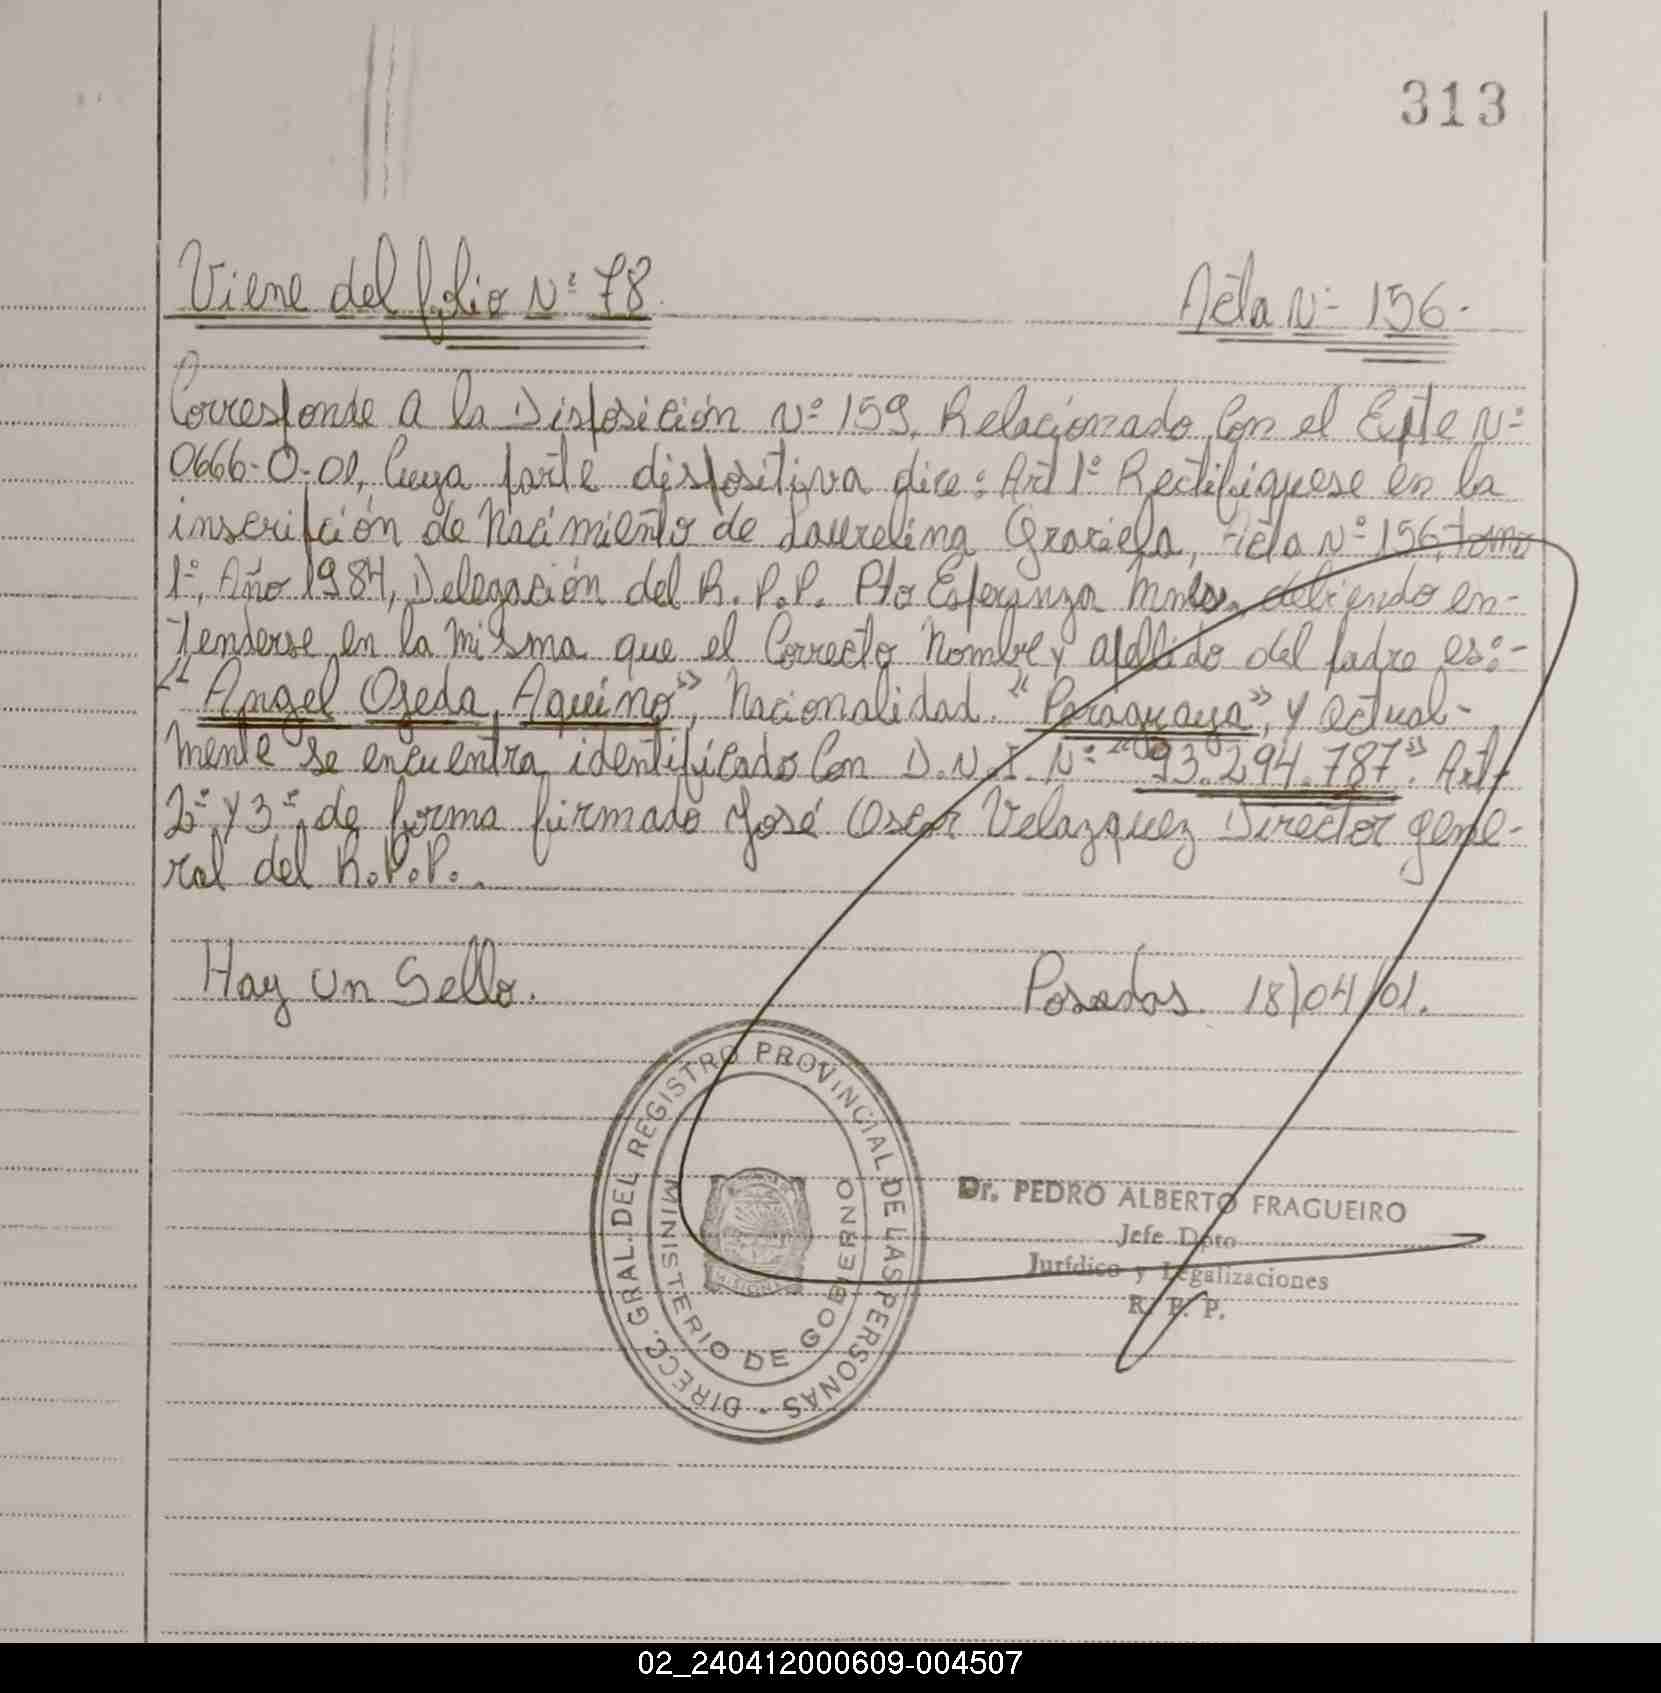 313
Viene del folio Nº 78. Acta Nº 156.-
Corresponde a la Disposición Nº 159, Relacionado Con el Expte Nº
0666-O-01, Cuya parte dispositiva dice: Art 1º Rectifiquese en la
inscripción de Nacimiento de Laurelina Graciela, Acta Nº 156, tomo
1º, Año 1984, Delegación del R.P.P. Pto Esperanza Mnes, debiendo en-
tenderse en la misma que el Correcto Nombre y apellido del padre es:-
"Angel Ojeda Aquino", Nacionalidad "Paraguaya", y actual-
mente se encuentra identificado Con D.N.I. Nº "93.294.787". Art-
2º y 3º de forma firmado José Oscar Velazquez Director gene-
ral del R.P.P..
Hay un Sello. Posadas. 18/04/01.
DIRECC. GRAL. DEL REGISTRO PROVINCIAL DE LAS PERSONAS -
MINISTERIO DE GOBIERNO
MISIONES
Dr. PEDRO ALBERTO FRAGUEIRO
Jefe Dpto
Jurídico y Legalizaciones
R. P. P.
02_240412000609-004507